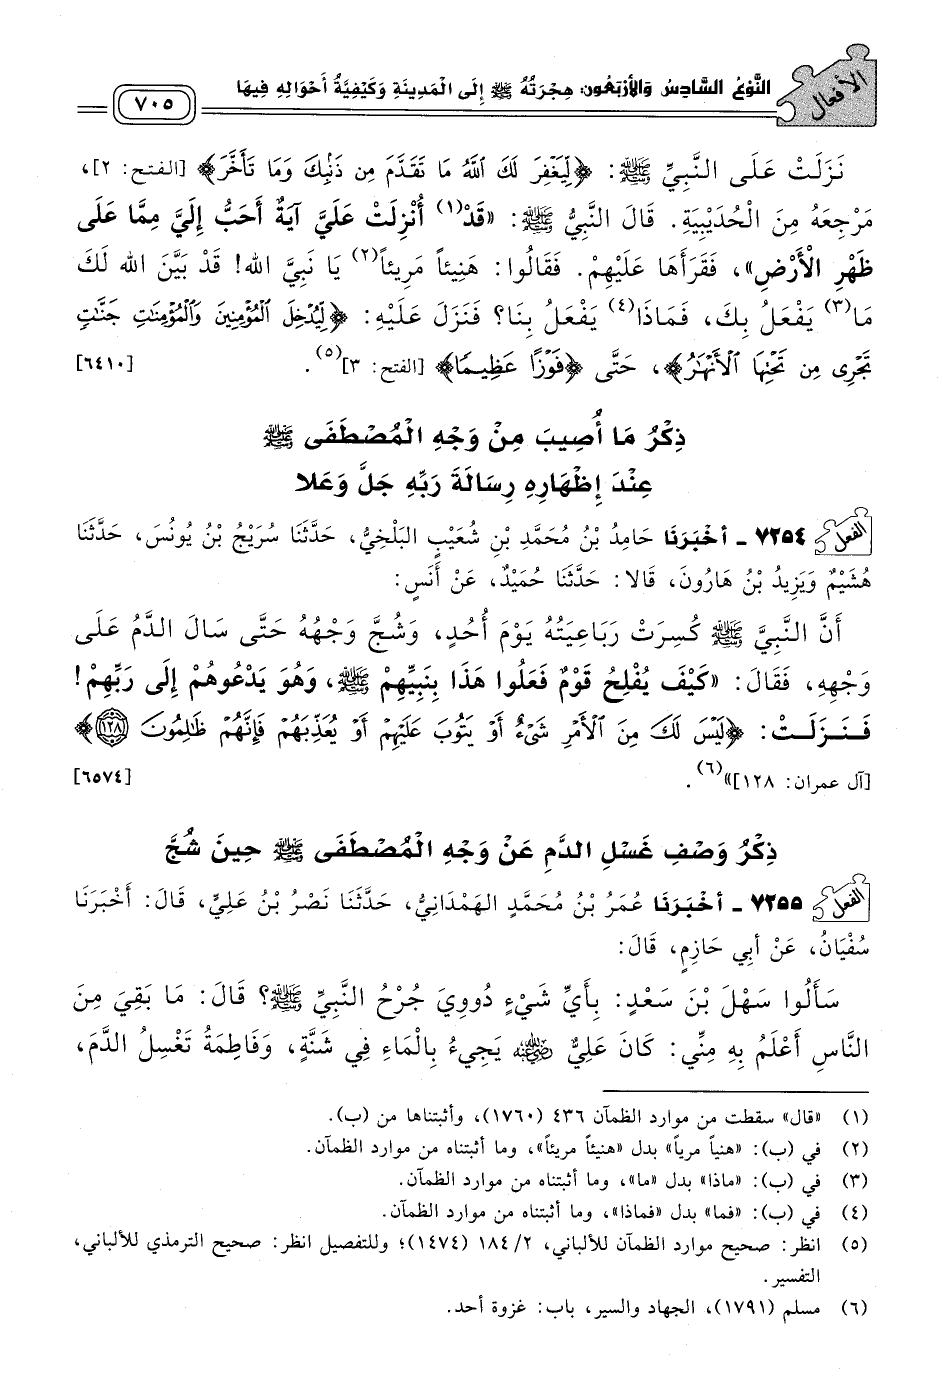 الأفعال
النَّوْعُ السَّادِسُ وَالأَرْبَعُونَ: هِجْرَتُهُ ﷺ إِلَى الْمَدِينَةِ وَكَيْفِيَّةُ أَحْوَالِهِ فِيهَا
٧٠٥
نَزَلَتْ عَلَى النَّبِيِّ ﷺ: ﴿لِيَغْفِرَ لَكَ اللَّهُ مَا تَقَدَّمَ مِن ذَنبِكَ وَمَا تَأَخَّرَ﴾ [الفتح: ٢]،
مَرْجِعَهُ مِنَ الْحُدَيْبِيَةِ. قَالَ النَّبِيُّ ﷺ: «قَدْ(١) أُنْزِلَتْ عَلَيَّ آيَةٌ أَحَبُّ إِلَيَّ مِمَّا عَلَى
ظَهْرِ الْأَرْضِ»، فَقَرَأَهَا عَلَيْهِمْ. فَقَالُوا: هَنِيئاً مَرِيئاً(٢) يَا نَبِيَّ الله! قَدْ بَيَّنَ الله لَكَ
مَا(٣) يَفْعَلُ بِكَ، فَمَاذَا(٤) يَفْعَلُ بِنَا؟ فَنَزَلَ عَلَيْهِ: ﴿لِيُدْخِلَ الْمُؤْمِنِينَ وَالْمُؤْمِنَاتِ جَنَّاتٍ
تَجْرِي مِن تَحْتِهَا الْأَنْهَارُ﴾، حَتَّى ﴿فَوْزًا عَظِيمًا﴾ [الفتح: ٣](٥). [٦٤١٠]
ذِكْرُ مَا أُصِيبَ مِنْ وَجْهِ الْمُصْطَفَى ﷺ
عِنْدَ إِظْهَارِهِ رِسَالَةَ رَبِّهِ جَلَّ وَعَلا
الفعل ٧٢٥٤ - أَخْبَرَنَا حَامِدُ بْنُ مُحَمَّدِ بْنِ شُعَيْبٍ البَلْخِيُّ، حَدَّثَنَا سُرَيْجُ بْنُ يُونُسَ، حَدَّثَنَا
هُشَيْمٌ وَيَزِيدُ بْنُ هَارُونَ، قَالا: حَدَّثَنَا حُمَيْدٌ، عَنْ أَنَسٍ:
أَنَّ النَّبِيَّ ﷺ كُسِرَتْ رَبَاعِيَتُهُ يَوْمَ أُحُدٍ، وَشُجَّ وَجْهُهُ حَتَّى سَالَ الدَّمُ عَلَى
وَجْهِهِ، فَقَالَ: «كَيْفَ يُفْلِحُ قَوْمٌ فَعَلُوا هَذَا بِنَبِيِّهِمْ ﷺ، وَهُوَ يَدْعُوهُمْ إِلَى رَبِّهِمْ!
فَنَزَلَتْ: ﴿لَيْسَ لَكَ مِنَ الْأَمْرِ شَيْءٌ أَوْ يَتُوبَ عَلَيْهِمْ أَوْ يُعَذِّبَهُمْ فَإِنَّهُمْ ظَالِمُونَ ١٢٨﴾
[آل عمران: ١٢٨]»(٦). [٦٥٧٤]
ذِكْرُ وَصْفِ غَسْلِ الدَّمِ عَنْ وَجْهِ الْمُصْطَفَى ﷺ حِينَ شُجَّ
الفعل ٧٢٥٥ - أَخْبَرَنَا عُمَرُ بْنُ مُحَمَّدٍ الهَمْدَانِيُّ، حَدَّثَنَا نَصْرُ بْنُ عَلِيٍّ، قَالَ: أَخْبَرَنَا
سُفْيَانُ، عَنْ أَبِي حَازِمٍ، قَالَ:
سَأَلُوا سَهْلَ بْنَ سَعْدٍ: بِأَيِّ شَيْءٍ دُووِيَ جُرْحُ النَّبِيِّ ﷺ؟ قَالَ: مَا بَقِيَ مِنَ
النَّاسِ أَعْلَمُ بِهِ مِنِّي: كَانَ عَلِيٌّ رضي الله عنه يَجِيءُ بِالْمَاءِ فِي شَنَّةٍ، وَفَاطِمَةُ تَغْسِلُ الدَّمَ،
(١) «قال» سقطت من موارد الظمآن ٤٣٦ (١٧٦٠)، وأثبتناها من (ب).
(٢) في (ب): «هنياً مرياً» بدل «هنيئاً مريئاً»، وما أثبتناه من موارد الظمآن.
(٣) في (ب): «ماذا» بدل «ما»، وما أثبتناه من موارد الظمآن.
(٤) في (ب): «فما» بدل «فماذا»، وما أثبتناه من موارد الظمآن.
(٥) انظر: صحيح موارد الظمآن للألباني، ٢/ ١٨٤ (١٤٧٤)؛ وللتفصيل انظر: صحيح الترمذي للألباني،
التفسير.
(٦) مسلم (١٧٩١)، الجهاد والسير، باب: غزوة أحد.